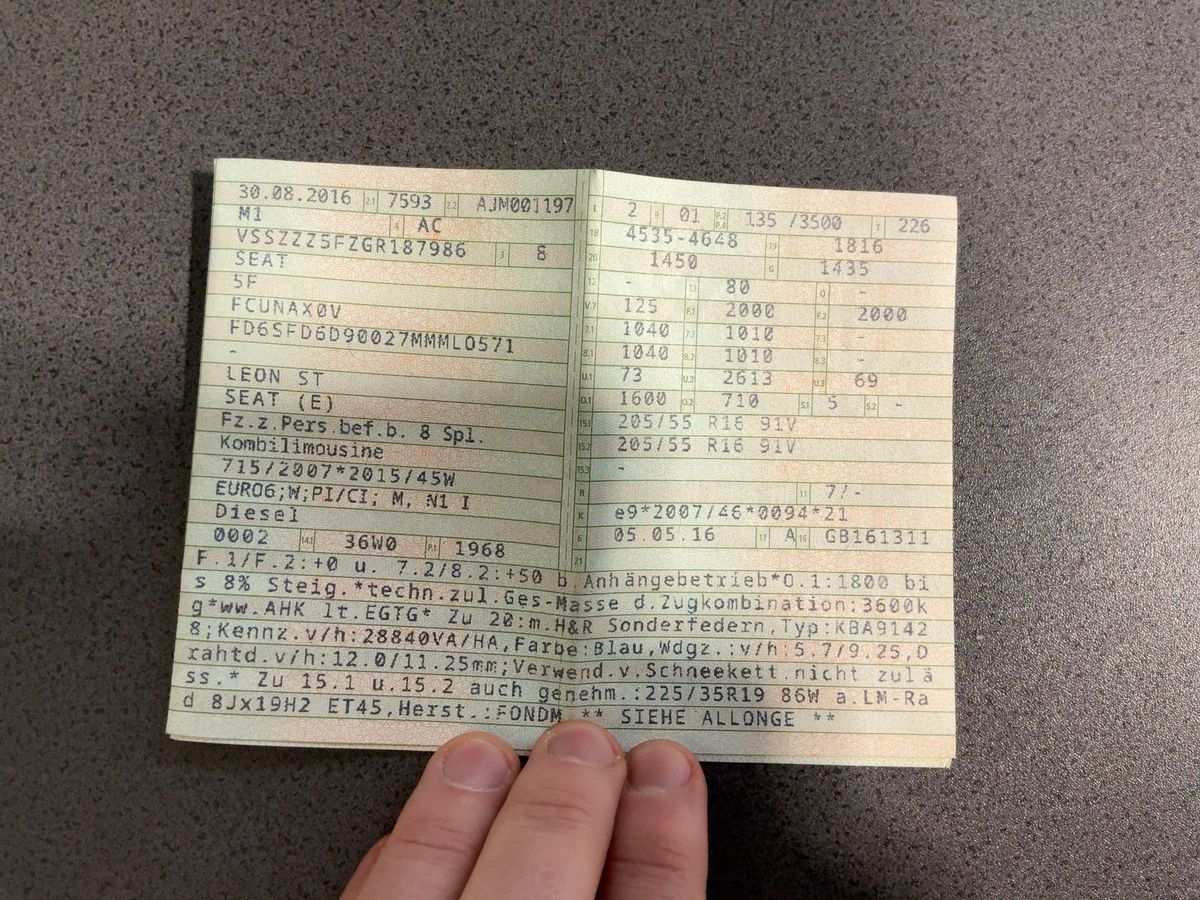 30.08.2016 2.1 7593 2.2 AJM001197
M1 4 AC
VSSZZZ5FZGR187986 3 8
SEAT
5F
FCUNAX0V
FD6SFD6D90027MMML0571
-
LEON ST
SEAT (E)
Fz.z.Pers.bef.b. 8 Spl.
Kombilimousine
715/2007*2015/45W
EURO6;W;PI/CI; M, N1 I
Diesel
0002 14.1 36W0 P.1 1968
L 2 9 01 P.2 P.4 135 /3500 T 226
18 4535-4648 19 1816
20 1450 G 1435
12 - 13 80 Q -
V.7 125 F.1 2000 F.2 2000
7.1 1040 7.2 1010 7.3 -
8.1 1040 8.2 1010 8.3 -
U.1 73 U.2 2613 U.3 69
O.1 1600 O.2 710 S.1 5 S.2 -
15.1 205/55 R16 91V
15.2 205/55 R16 91V
15.3 -
R 11 7/-
K e9*2007/46*0094*21
6 05.05.16 17 A 16 GB161311
21
F.1/F.2:+0 u. 7.2/8.2:+50 b.Anhängebetrieb*O.1:1800 bi
s 8% Steig.*techn.zul.Ges-Masse d.Zugkombination:3600k
g*ww.AHK lt.EGTG* Zu 20:m.H&R Sonderfedern,Typ:KBA9142
8;Kennz.v/h:28840VA/HA,Farbe:Blau,Wdgz.:v/h:5.7/9.25,D
rahtd.v/h:12.0/11.25mm;Verwend.v.Schneekett.nicht zulä
ss.* Zu 15.1 u.15.2 auch genehm.:225/35R19 86W a.LM-Ra
d 8Jx19H2 ET45,Herst.:FONDM ** SIEHE ALLONGE **